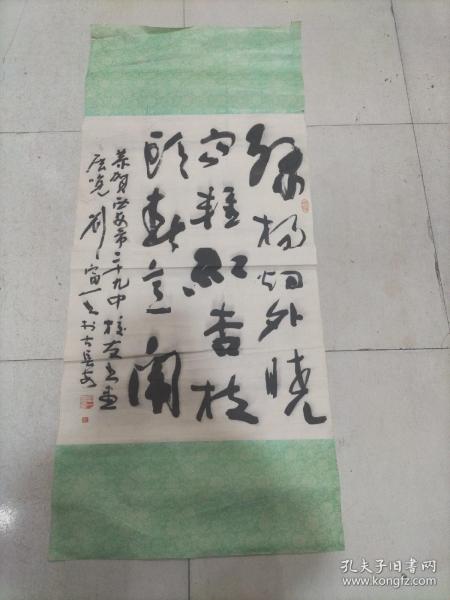 绿杨烟外晓
寒轻红杏枝
头春意闹
恭贺西安市二十九中校友书画
展览 刘富一书于古长安
孔夫子旧书网
www.kongfz.com